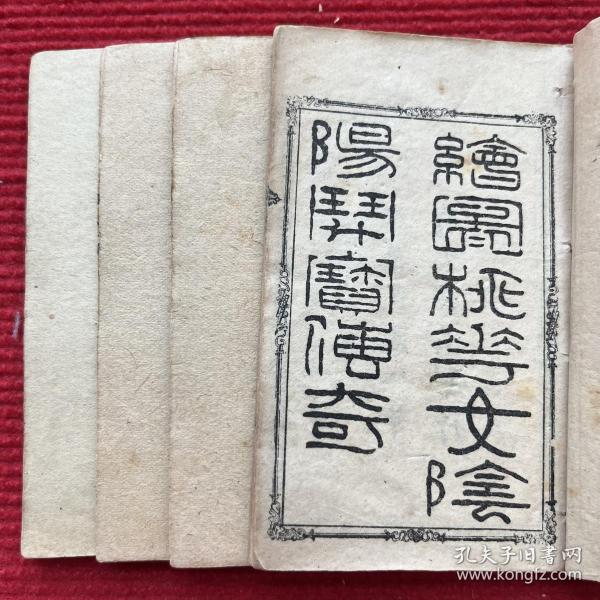 繪圖桃花女陰
陽鬪寶傳奇
孔夫子旧书网
www.kongfz.com